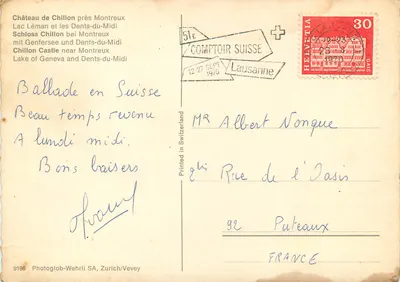 Château de Chillon près Montreux
Lac Léman et les Dents-du-Midi
Schloss Chillon bei Montreux
mit Genfersee und Dents-du-Midi
Chillon Castle near Montreux
Lake of Geneva and Dents-du-Midi
51e
COMPTOIR SUISSE
12-27 SEPT
1970
Lausanne
HELVETIA
30
1970
Ballade en Suisse
Beau temps revenu
A lundi midi.
Bons baisers
Printed in Switzerland
Mr Albert
Rue de l'Oasis
92 Puteaux
FRANCE
Photoglob-Wehrli SA, Zurich/Vevey